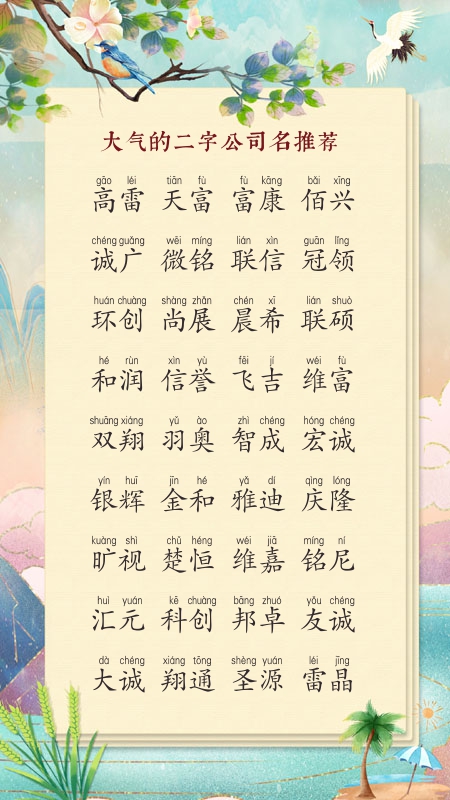 大气的二字公司名推荐
gāo léi tiān fù fù kāng bǎi xīng
高雷 天富 富康 佰兴
chéng guǎng wēi míng lián xìn guān lǐng
诚广 微铭 联信 冠领
huán chuàng shàng zhǎn chén xī lián shuò
环创 尚展 晨希 联硕
hé rùn xìn yù fēi jí wéi fù
和润 信誉 飞吉 维富
shuāng xiáng yǔ ào zhì chéng hóng chéng
双翔 羽奥 智成 宏诚
yín huī jīn hé yǎ dí qìng lóng
银辉 金和 雅迪 庆隆
kuàng shì chǔ héng wéi jiā míng ní
旷视 楚恒 维嘉 铭尼
huì yuán kē chuàng bāng zhuó yǒu chéng
汇元 科创 邦卓 友诚
dà chéng xiáng tōng shèng yuán léi jīng
大诚 翔通 圣源 雷晶